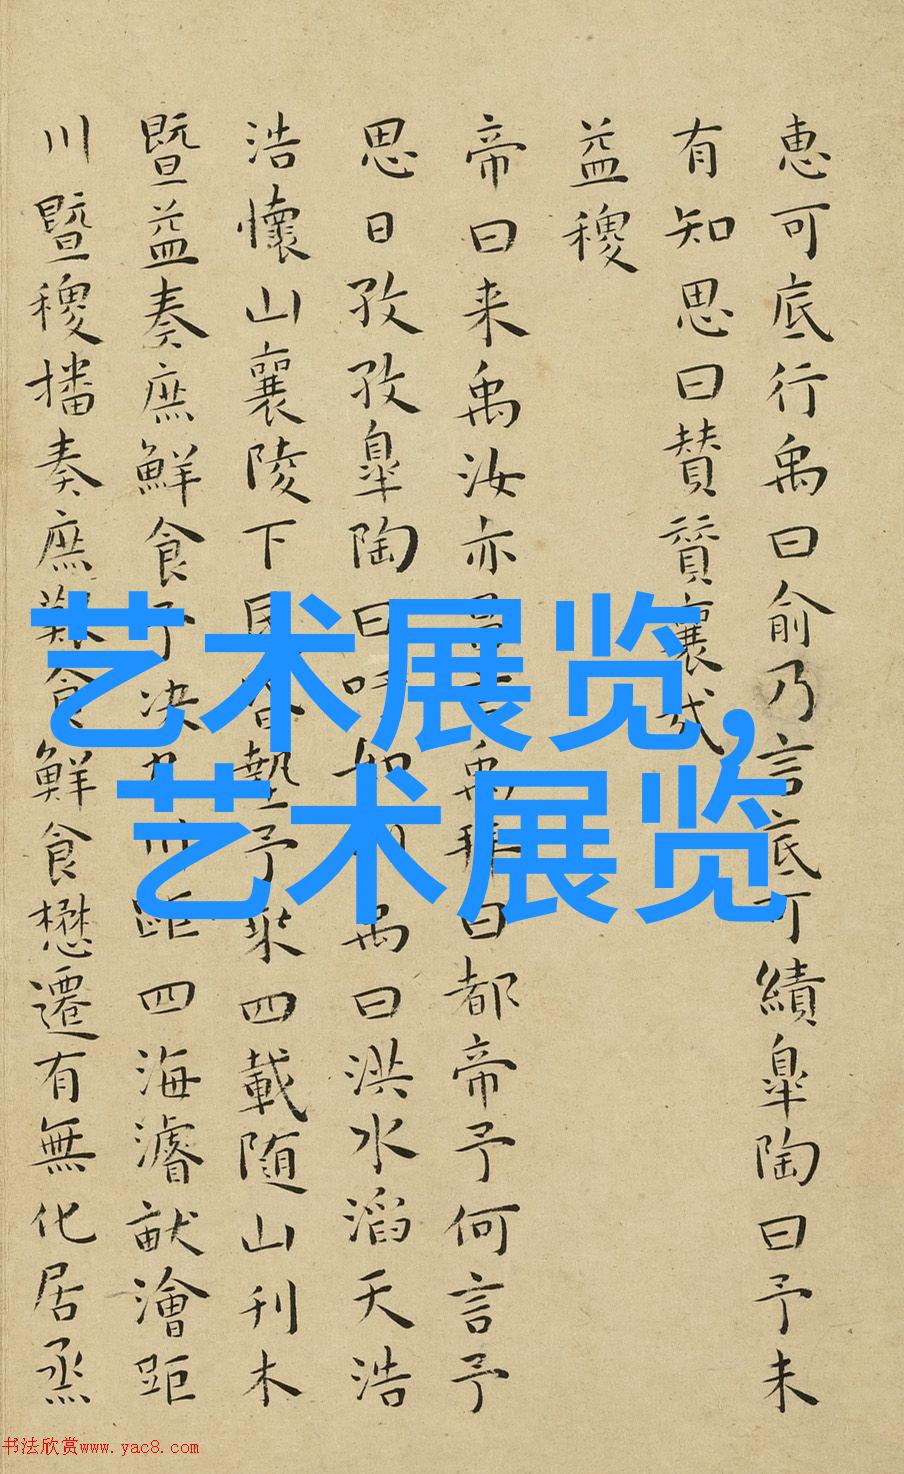 惠可底行禹曰俞乃言底可績皐陶曰予未
有知思曰賛賛襄哉
益稷
帝曰来禹汝亦昌言禹拜曰都帝予何言予
思日孜孜皐陶曰吁如何禹曰洪水滔天浩
浩懷山襄陵下民昏墊予乘四載随山刊木
暨益奏庶鮮食予决九川距四海濬畎澮距
川暨稷播奏庶艱食鮮食懋遷有無化居烝
艺术展览,
艺术展览
书法欣赏www.yac8.com